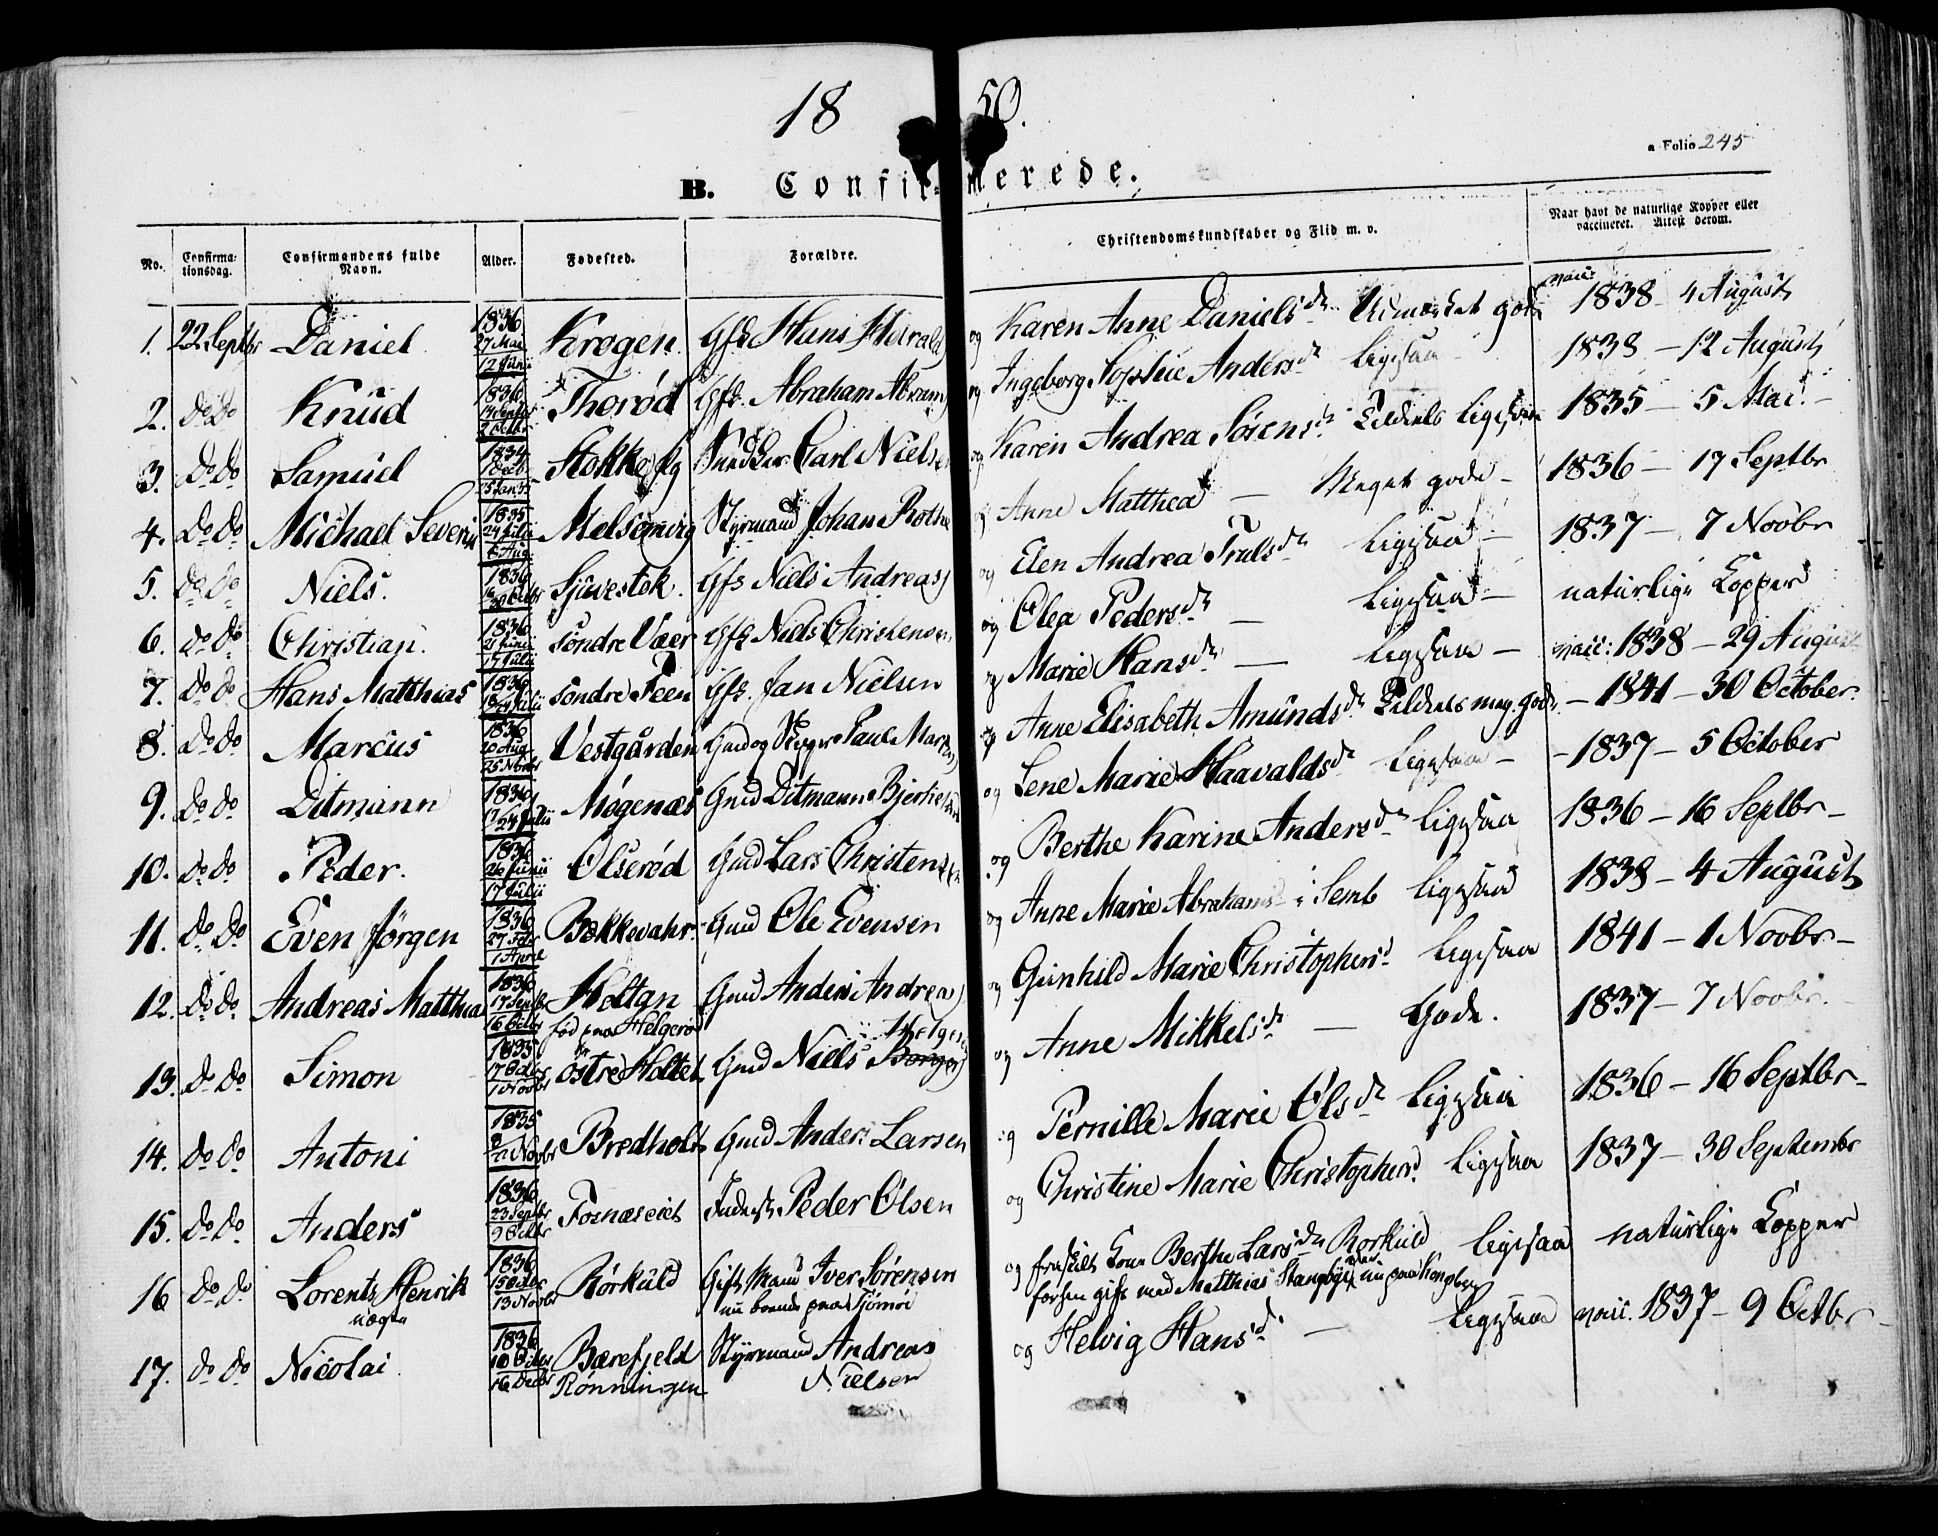 18 50.
a Folio 245
B. Confirmerede.
No. Confirma-tionsdag. Confirmandens fulde Navn. Alder. Fødested. Forældre. Christendomskundskaber og Flid m. v. Naar havt de naturlige Kopper eller vaccineret. Attest derom.
1. 22 Septbr Daniel 1836 27 Mai 12 Junii Krogen Gfs Hans og Karen Anne Danielsdr Udmærket gode vacc: 1838 - 4 August
2. do do Knud 1836 Thorød Gfs. Abraham Abrams og Ingeborg Sophie Andersdr ligesaa 1838 - 12 August
3. Do Do Samuel 1834 Stokke Carl Nielsen og Karen Andrea Sørensdr Tildeels ligesaa 1835 - 5 Mai
4. Do Do Michael Severin 1835 24 Julii 8 Aug. Melsomvig Styrmand Johan Rothe og Anne Matthea - Meget gode - 1836 - 17 Septbr
5. do do Niels. 1836 30 Octbr Sjuestok. Gfs Niels Andreas og Elen Andrea Trulsdr ligesaa - 1837 - 7 Novbr
6. do do Christian. 1836 21 Junii 17 Julii søndre Væer Gfs Niels Christensen og Olea Pedersdr - ligesaa - naturlige Kopper
7. Do do Hans Matthias 1836 søndre Feen Gfs. Jan Nielsen og Marie Hansdr - ligesaa - vacc: 1838 - 29 August
8. do do Marcus 1836 20 Aug. 25 Novbr Vestgården Gmd og Skipper Paul og Anne Elisabeth Amundsdr Tildeels meg. gode - 1841 - 30 October
9. do do Ditmann 1836 Møgenæs Gmd Ditmann og Lene Marie Haavaldsdr ligesaa - 1837 - 5 October
10. do do Peder. 1836 26 Junii 17 Julii Olserød Gmd Lars Christensen og Berthe Karine Andersdr ligesaa 1836 - 16 Septbr -
11. do do Even Jørgen 1836 27 Febr 1 April Bekkevahr Gmd Ole Evensen og Anne Marie Abrahams i Semb ligesaa 1838 - 4 August
12. do do Andreas Matthias 1836 17 Septbr 16 Octbr Holtan Gmd Anders Andreas og Gunhild Marie Christophersd ligesaa 1841 - 1 Novbr -
fød paa Helgerød
13. do do Simon 1835 17 Octbr 1 Novbr østre Holtet Gmd Niels og Anne Mikkelsdr - Gode. 1837 - 7 Novbr.
14. do do Antoni 1835 Bredholt Gmd Anders Larsen og Pernille Marie Olsdr ligesaa 1836 - 16 Septbr -
15. do do Anders 1836 23 Septbr 9 Octbr Fornæseiet Inderst Peder Olsen og Christine Marie Christophersd. ligesaa 1837 - 30 Septembr
16 do do Lorents Henrik 1836 15 Octbr 13 Novbr Rørkuld Gift Mand Iver Sørensen og fraskilt Kone Berthe Larsdr Rørkuld ligesaa naturlige Kopper
uægte nu boende paa Tjømøe forhen gift med Matthias nu paa Kongsberg
17. do do Nicolai. 1836 10 Octbr 16 Decbr Bærefjeld Styrmand Andreas og Helvig Hansd. - ligesaa vacc. 1837 - 9 Octbr -
Rønningen Nielsen